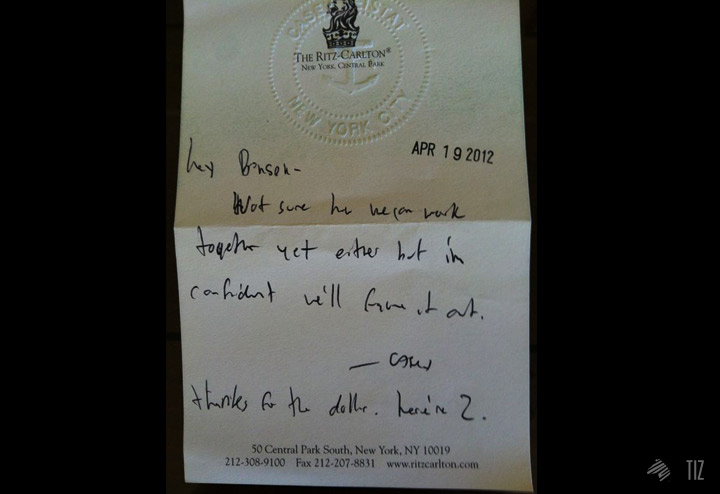 CASEY NEISTAT
THE RITZ-CARLTON®
NEW YORK, CENTRAL PARK
NEW YORK CITY
APR 19 2012
hey Benson-
Not sure how we can work
together yet either but im
confident we'll figure it out.
— CASEY
thanks for the dollar. here're 2.
50 Central Park South, New York, NY 10019
212-308-9100 Fax 212-207-8831 www.ritzcarlton.com
TIZ